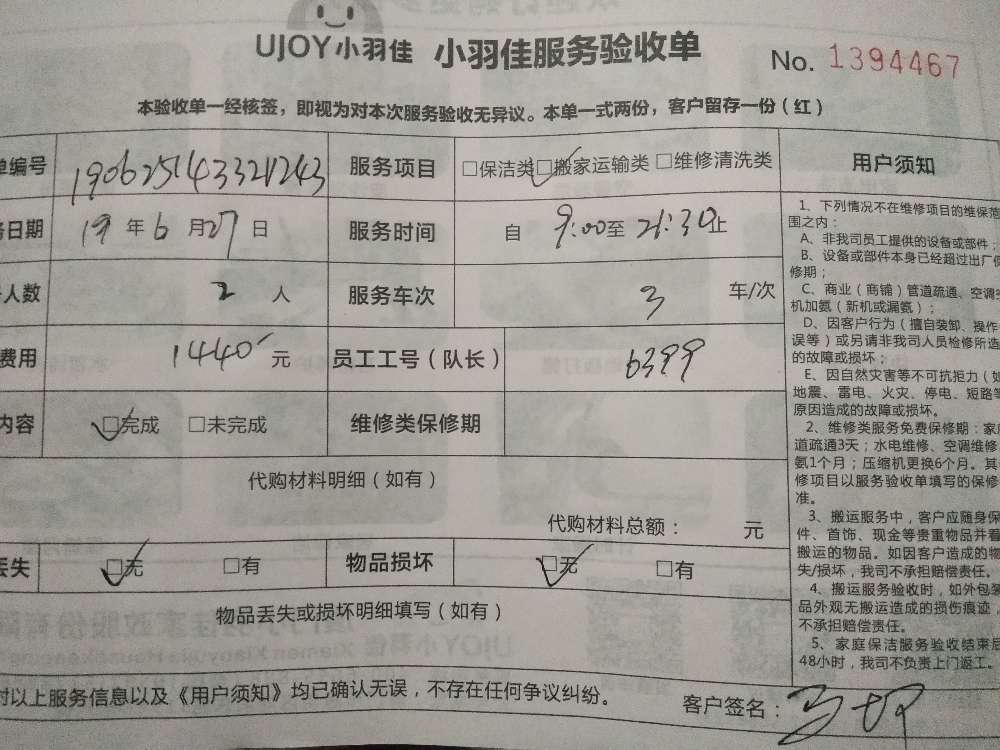 UJOY小羽佳 小羽佳服务验收单 No. 1394467
本验收单一经核签，即视为对本次服务验收无异议。本单一式两份，客户留存一份（红）
单编号 1906251433421243 服务项目 □保洁类 □搬家运输类 □维修清洗类 用户须知
务日期 19年6月27日 服务时间 自 9:00至 21:30止
人数 2 人 服务车次 3 车/次
费用 1440 元 员工工号（队长） 6399
内容 □完成 □未完成 维修类保修期
代购材料明细（如有）
代购材料总额： 元
丢失 □无 □有 物品损坏 □无 □有
物品丢失或损坏明细填写（如有）
对以上服务信息以及《用户须知》均已确认无误，不存在任何争议纠纷。
客户签名：
1、下列情况不在维修项目的维保范
围之内：
A、非我司员工提供的设备或部件；
B、设备或部件本身已经超过出厂保
修期；
C、商业（商铺）管道疏通、空调
机加氨（新机或漏氨）；
D、因客户行为（擅自装卸、操作
误等）或另请非我司人员检修所造
的故障或损坏；
E、因自然灾害等不可抗拒力（如
地震、雷电、火灾、停电、短路等
原因造成的故障或损坏。
2、维修类服务免费保修期：家庭
道疏通3天；水电维修、空调维修
氨1个月；压缩机更换6个月。其
修项目以服务验收单填写的保修
准。
3、搬运服务中，客户应随身保
件、首饰、现金等贵重物品并看
搬运的物品。如因客户造成的物
失/损坏，我司不承担赔偿责任。
4、搬运服务验收时，如外包装
品外观无搬运造成的损伤痕迹，
不承担赔偿责任。
5、家庭保洁服务验收结束后
48小时，我司不负责上门返工。